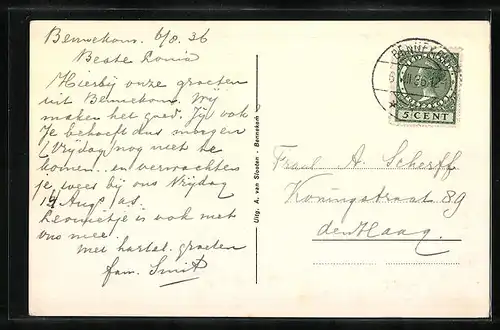 Bennekom. 6/8.36
Beste
Hierbij onze groeten
uit Bennekom. Wij
maken het goed. Jij ook?
Je behoeft dus morgen
(Vrijdag) nog niet te
komen.. en verwachten
je weer bij ons Vrijdag
14 Aug. a.s.
is ook met
ons mee.
Met hartel. groeten
fam. Smit
Uitg. A. van Slooten - Bennekom
BENNEKOM
5 CENT
A. Scherff
Koningstraat 89
den Haag.